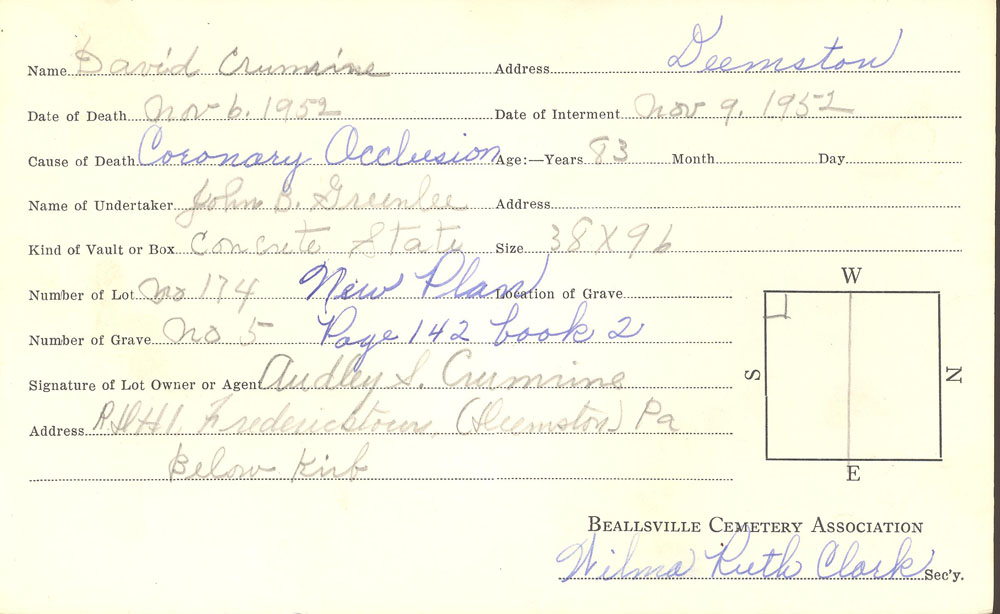 Name David Crumrine Address Deemston
Date of Death Nov 6. 1952 Date of Interment Nov 9. 1952
Cause of Death Coronary Occlusion Age:—Years 83 Month Day
Name of Undertaker John B. Greenlee Address
Kind of Vault or Box Concrete State Size 38 X 96
Number of Lot No 174 New Plan Location of Grave
Number of Grave No 5 Page 142 book 2
Signature of Lot Owner or Agent Audley S. Crumrine
Address R.D.#1. Fredericktown (Deemston) Pa
Below Kirb
W
S N
E
BEALLSVILLE CEMETERY ASSOCIATION
Wilma Ruth Clark Sec'y.